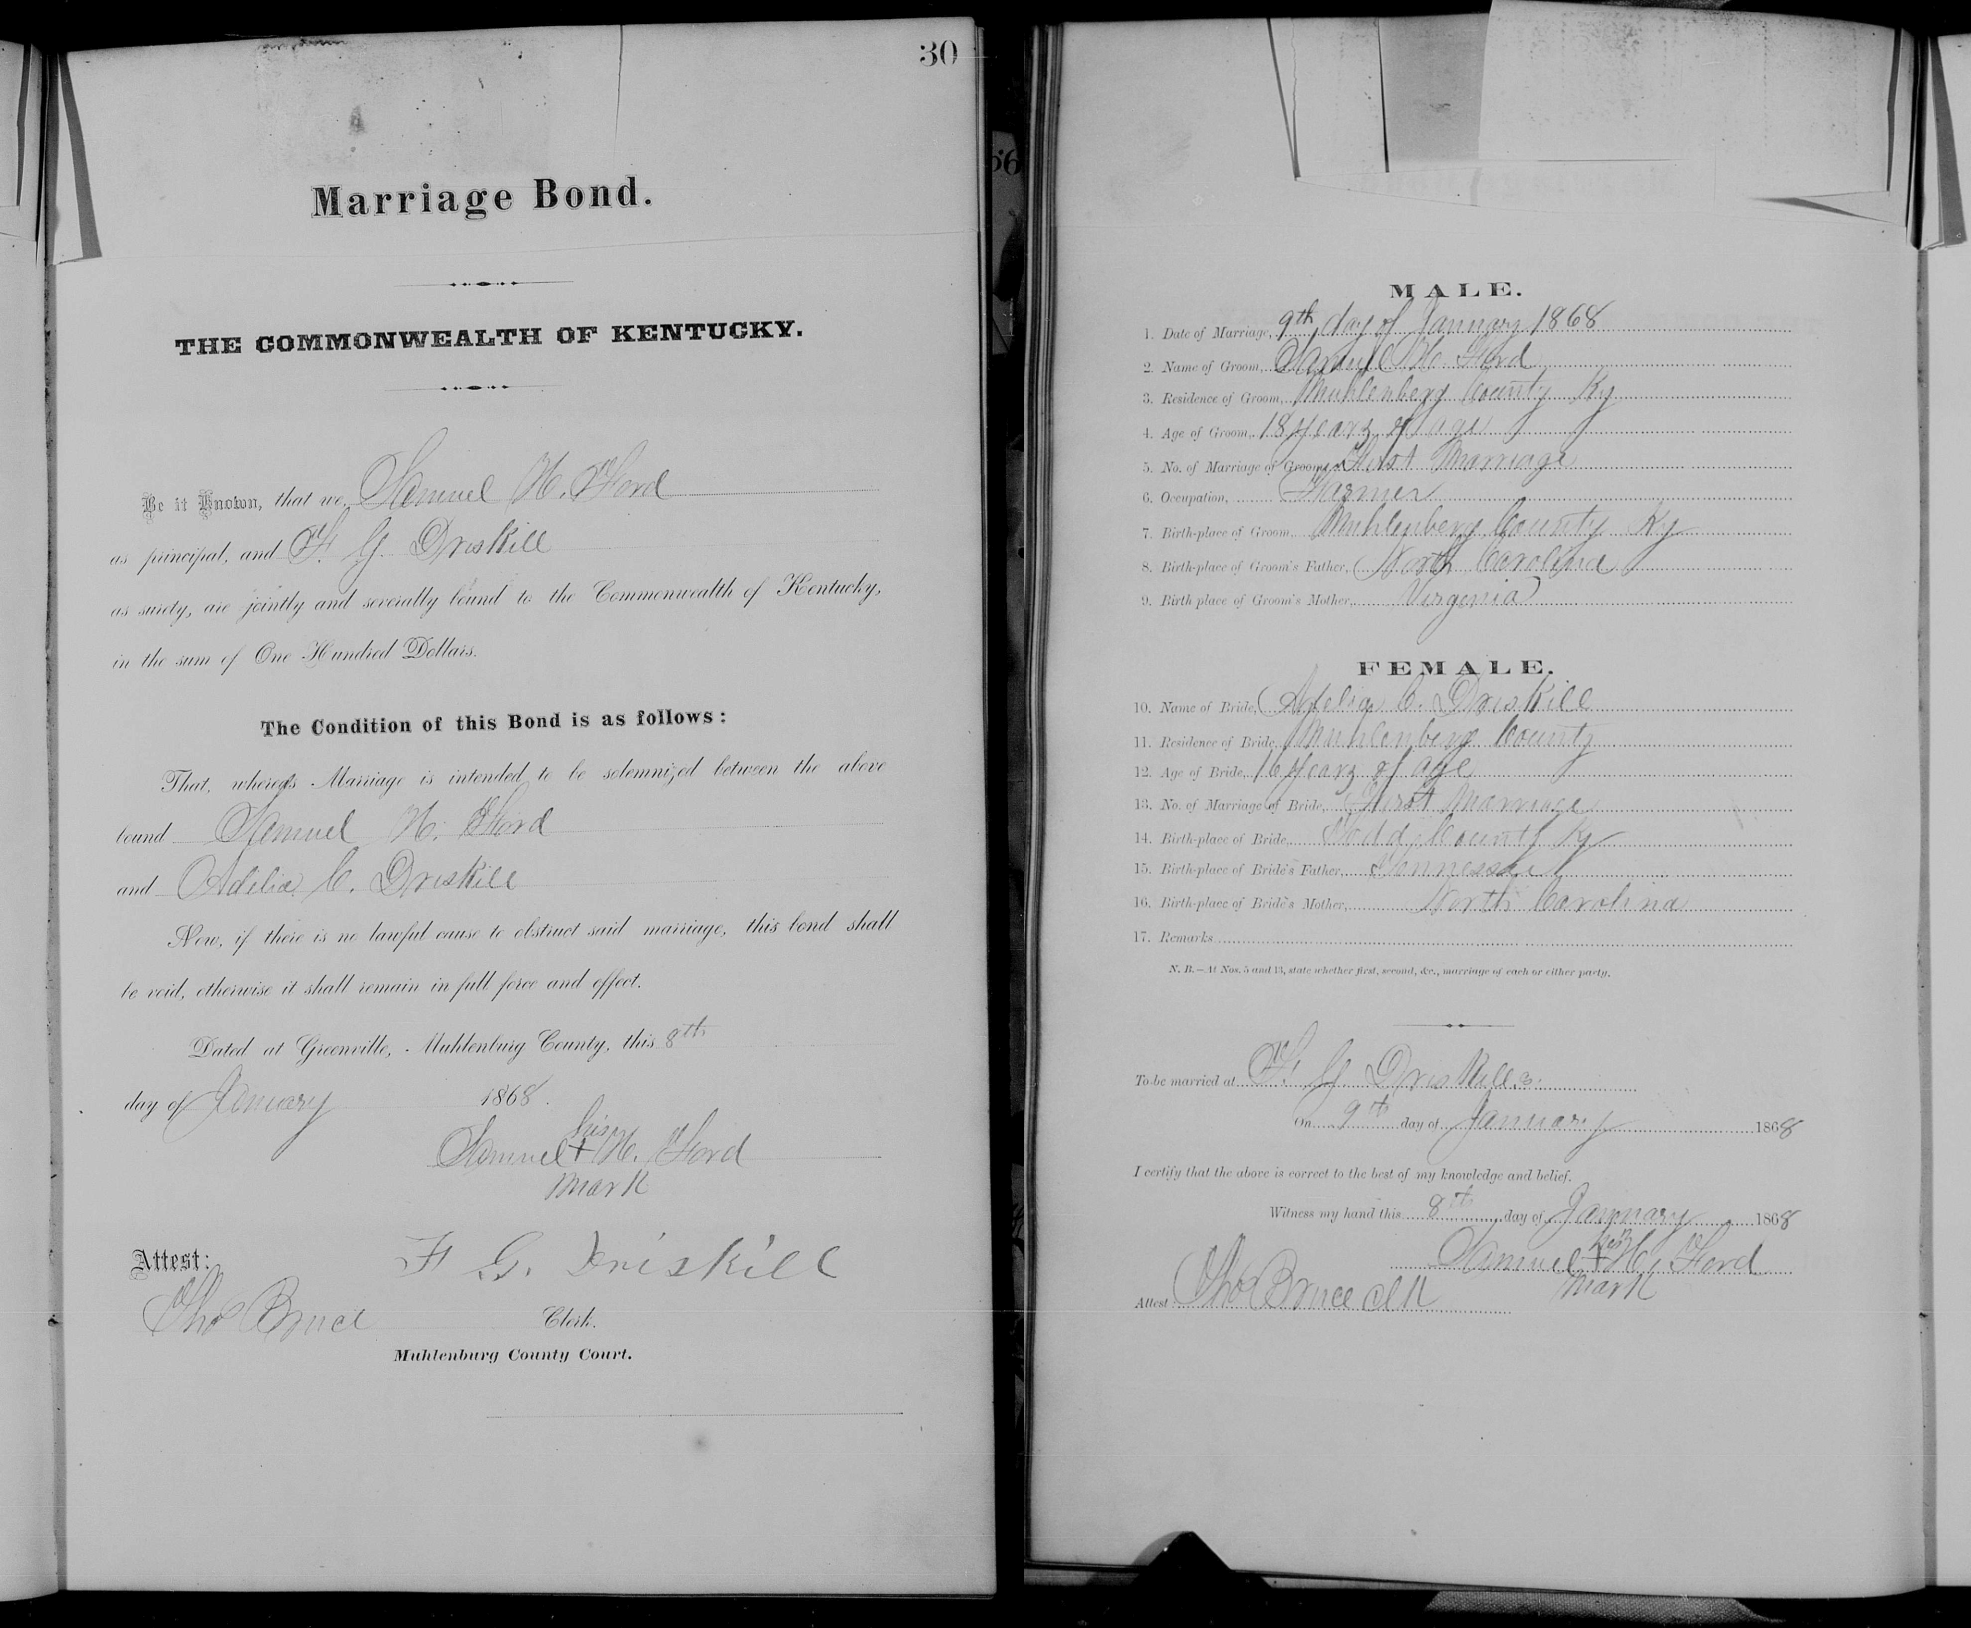 30
Marriage Bond.
THE COMMONWEALTH OF KENTUCKY.
Be it Known, that we, Samuel H. Ford
as principal, and F. G. Driskill
as surety, are jointly and severally bound to the Commonwealth of Kentucky,
in the sum of One Hundred Dollars.
The Condition of this Bond is as follows:
That, whereas Marriage is intended to be solemnized between the above
bound Samuel H. Ford
and Adelia C. Driskill
Now, if there is no lawful cause to obstruct said marriage, this bond shall
be void, otherwise it shall remain in full force and effect.
Dated at Greenville, Muhlenburg County, this 8th
day of January 1868.
his
Samuel + H. Ford
mark
F G. Driskill
Attest:
Thos Bruce Clerk.
Muhlenburg County Court.
56
MALE.
1. Date of Marriage, 9th, day of January 1868
2. Name of Groom, Samuel H. Ford
3. Residence of Groom, Muhlenberg County Ky
4. Age of Groom, 18 years of age
5. No. of Marriage of Groom, First Marriage
6. Occupation, Farmer
7. Birth-place of Groom, Muhlenberg County Ky
8. Birth-place of Groom's Father, North Carolina
9. Birth place of Groom's Mother, Virginia
FEMALE.
10. Name of Bride, Adelia C. Driskill
11. Residence of Bride, Muhlenberg County
12. Age of Bride, 16 years of age
13. No. of Marriage of Bride, First Marriage
14. Birth-place of Bride, Todd County Ky
15. Birth-place of Bride's Father, Tennessee
16. Birth-place of Bride's Mother, North Carolina
17. Remarks
N. B.—At Nos. 5 and 13, state whether first, second, &c., marriage of each or either party.
To be married at F. G. Driskills.
On 9th day of January 1868
I certify that the above is correct to the best of my knowledge and belief.
Witness my hand this 8th day of January 1868
his
Samuel + H. Ford
mark
Attest Thos Bruce Clk